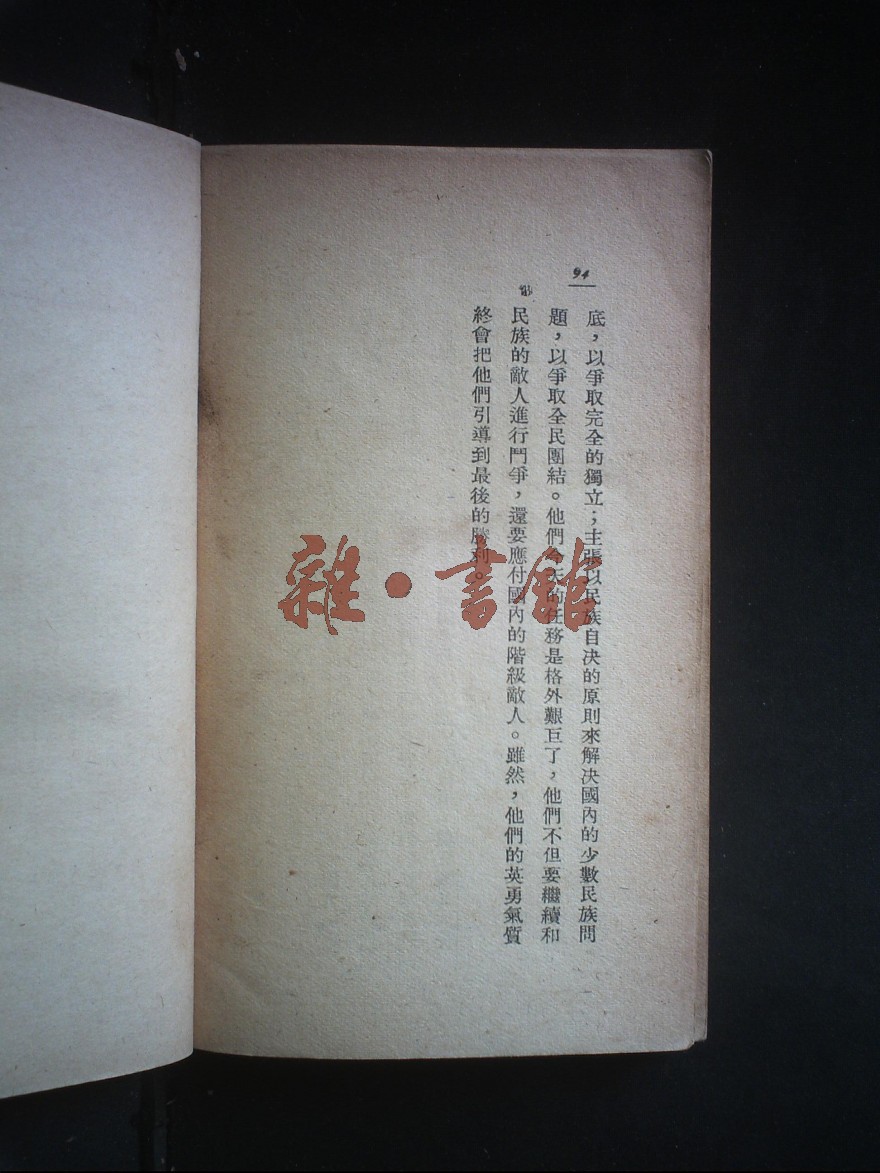 94
底，以爭取完全的獨立；主張以民族自決的原則來解決國內的少數民族問
題，以爭取全民團結。他們今天的任務是格外艱巨了，他們不但要繼續和
民族的敵人進行鬥爭，還要應付國內的階級敵人。雖然，他們的英勇氣質
終會把他們引導到最後的勝利。
雜·書館